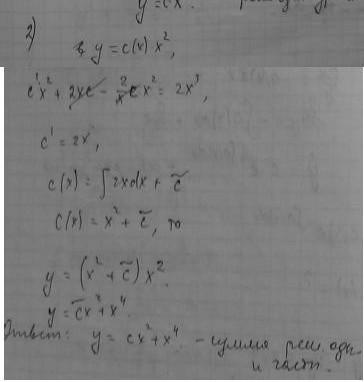 y = cx².
2)
в y = c(x) x²,
c'x² + 2xc - 2/x c x² = 2x³,
c' = 2x,
c(x) = ∫ 2x dx + c̃
c(x) = x² + c̃, то
y = (x² + c̃) x².
y = c̃x² + x⁴.
Ответ: y = cx² + x⁴ - сумма реш. одн.
и частн.